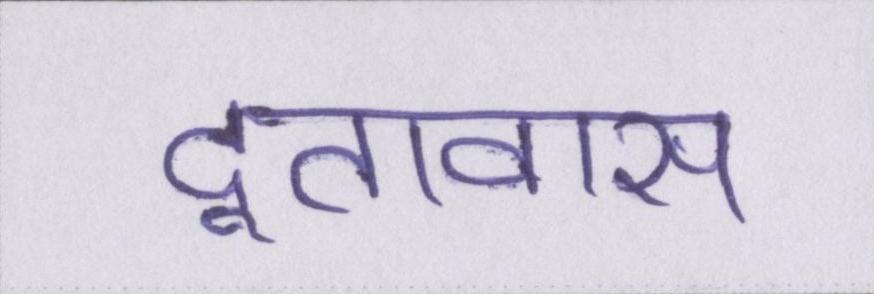 दूतावास